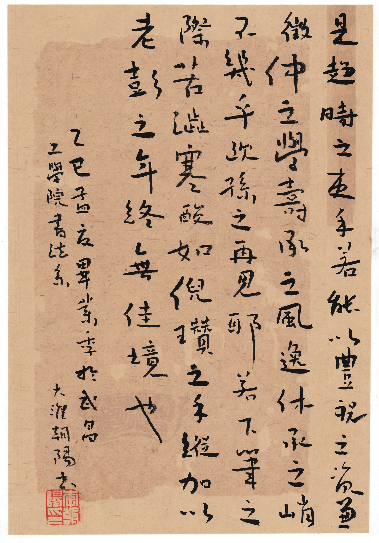 是趋時之更手若能以豐祝之資兼
徵仲之學壽承之風逸休承之峭
不幾乎過孫之再見耶若下筆之
際苦澁寒酸如倪瓚之手縱加以
老彭之年終無佳境也
乙巳孟夏畢業季於武昌
工學院書法系
大淮朝陽書